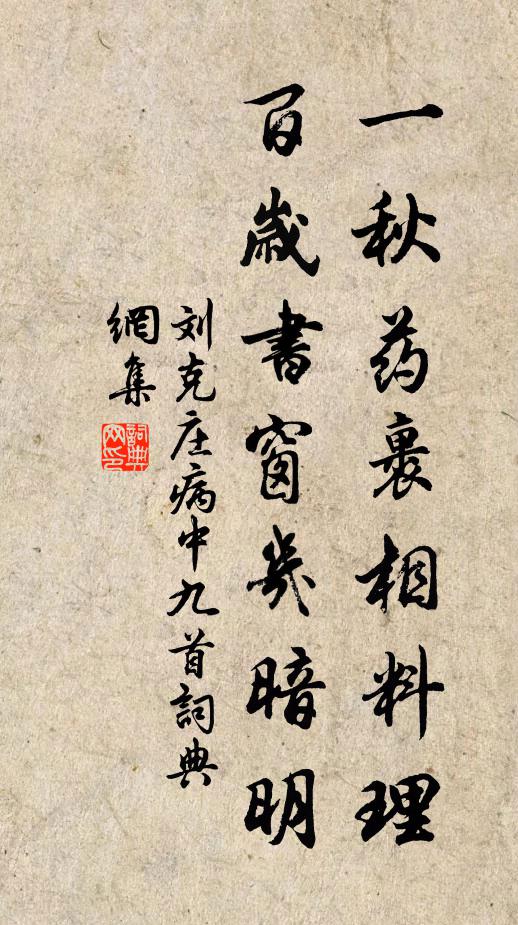 一秋药裹相料理
百歲書窗几暗明
刘克庄病中九首詞典
網集
詞典网印